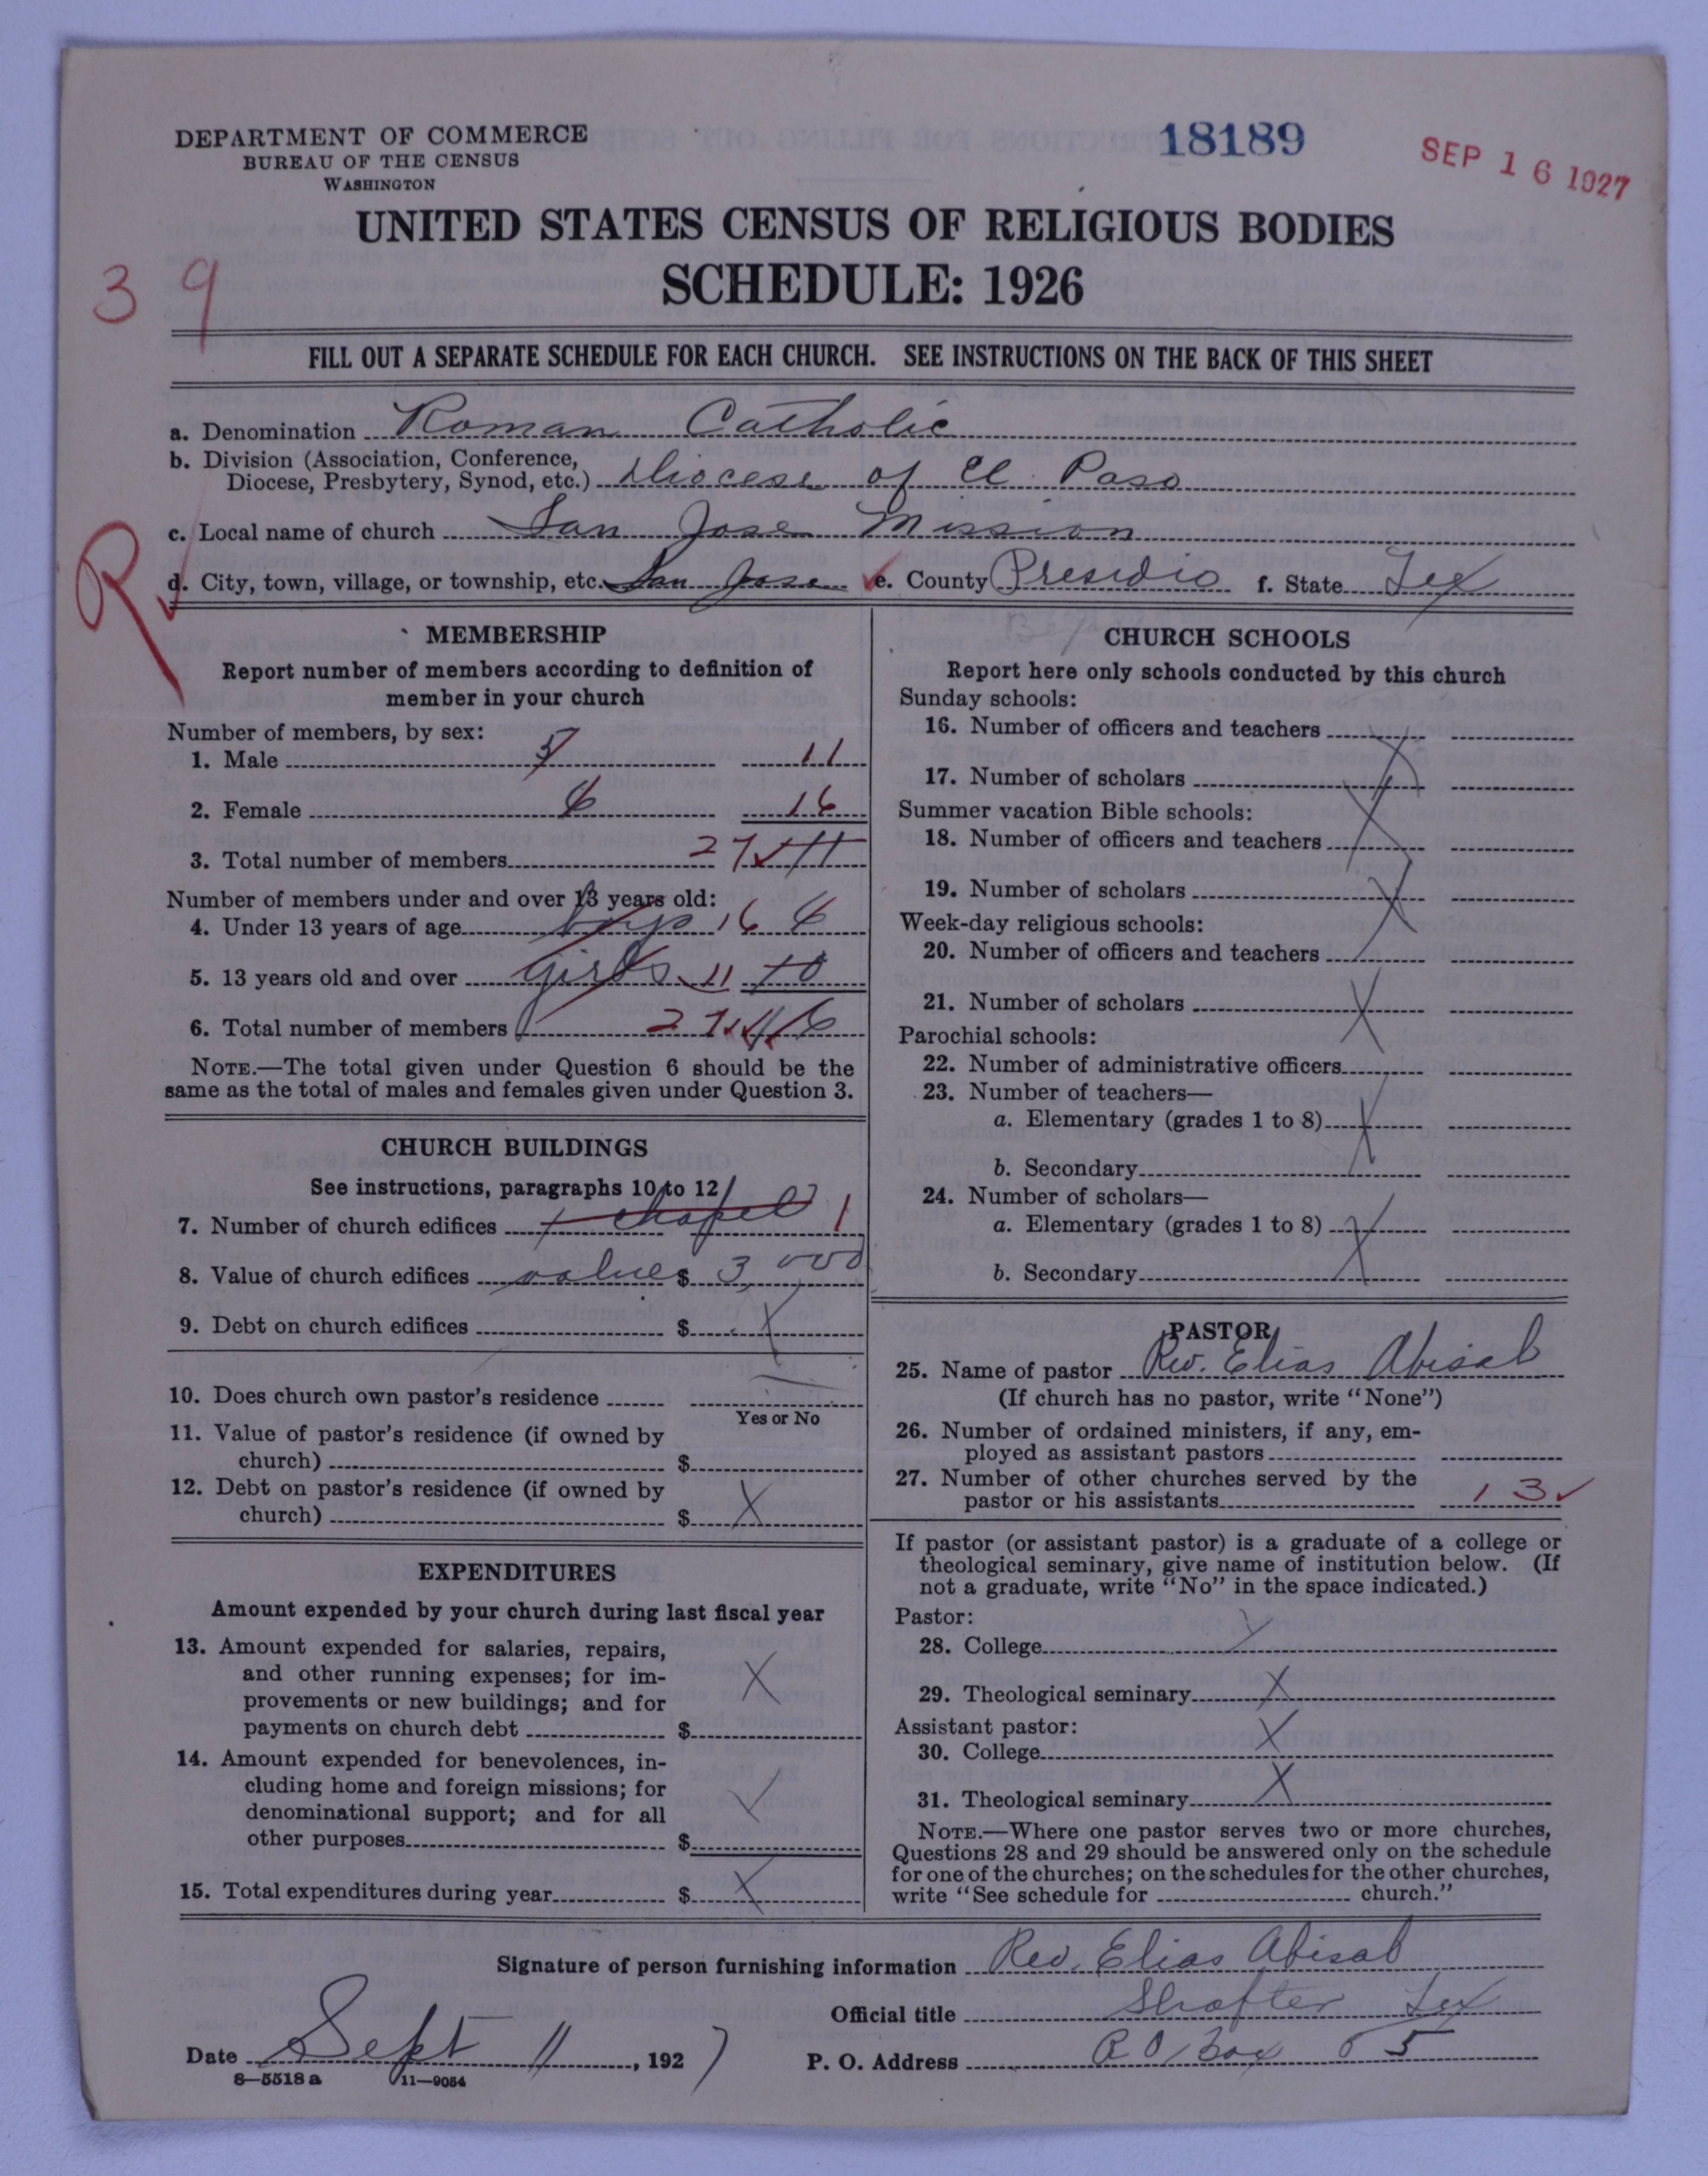 DEPARTMENT OF COMMERCE
BUREAU OF THE CENSUS
WASHINGTON
18189
SEP 16 1927
UNITED STATES CENSUS OF RELIGIOUS BODIES
SCHEDULE: 1926
39
FILL OUT A SEPARATE SCHEDULE FOR EACH CHURCH. SEE INSTRUCTIONS ON THE BACK OF THIS SHEET
a. Denomination Roman Catholic
b. Division (Association, Conference,
Diocese, Presbytery, Synod, etc.) Diocese of El Paso
c. Local name of church San Jose Mission
R
d. City, town, village, or township, etc. San Jose e. County Presidio f. State Tex
MEMBERSHIP
Report number of members according to definition of
member in your church
Number of members, by sex:
1. Male 5 11
2. Female 6 16
3. Total number of members 27 11
Number of members under and over 13 years old:
4. Under 13 years of age boys 16 6
5. 13 years old and over girls 11 10
6. Total number of members 27 16
NOTE.—The total given under Question 6 should be the
same as the total of males and females given under Question 3.
CHURCH BUILDINGS
See instructions, paragraphs 10 to 12
7. Number of church edifices 1 chapel 1
8. Value of church edifices value $ 3,000
9. Debt on church edifices $ X
10. Does church own pastor's residence
Yes or No
11. Value of pastor's residence (if owned by
church) $
12. Debt on pastor's residence (if owned by
church) $ X
EXPENDITURES
Amount expended by your church during last fiscal year
13. Amount expended for salaries, repairs,
and other running expenses; for im-
provements or new buildings; and for
payments on church debt $ X
14. Amount expended for benevolences, in-
cluding home and foreign missions; for
denominational support; and for all
other purposes $ X
15. Total expenditures during year $ X
CHURCH SCHOOLS
Report here only schools conducted by this church
Sunday schools:
16. Number of officers and teachers
17. Number of scholars
Summer vacation Bible schools:
18. Number of officers and teachers
19. Number of scholars
Week-day religious schools:
20. Number of officers and teachers
21. Number of scholars X
Parochial schools:
22. Number of administrative officers
23. Number of teachers—
a. Elementary (grades 1 to 8) X
b. Secondary
24. Number of scholars—
a. Elementary (grades 1 to 8) X
b. Secondary
PASTOR
25. Name of pastor Rev. Elias Abisab
(If church has no pastor, write "None")
26. Number of ordained ministers, if any, em-
ployed as assistant pastors
27. Number of other churches served by the
pastor or his assistants 13
If pastor (or assistant pastor) is a graduate of a college or
theological seminary, give name of institution below. (If
not a graduate, write "No" in the space indicated.)
Pastor:
28. College X
29. Theological seminary X
Assistant pastor:
30. College X
31. Theological seminary X
NOTE.—Where one pastor serves two or more churches,
Questions 28 and 29 should be answered only on the schedule
for one of the churches; on the schedules for the other churches,
write "See schedule for church."
Signature of person furnishing information Rev. Elias Abisab
Official title Shafter Tex
Date Sept 11, 1927 P. O. Address P O Box 65
8—5518 a 11—9054